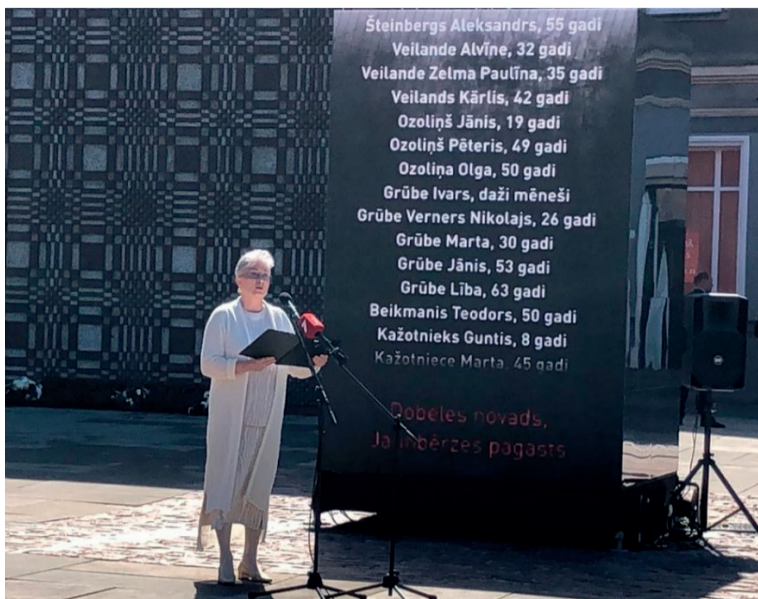 Šteinbergs Aleksandrs, 55 gadi
Veilande Alvīne, 32 gadi
Veilande Zelma Paulīna, 35 gadi
Veilands Kārlis, 42 gadi
Ozoliņš Jānis, 19 gadi
Ozoliņš Pēteris, 49 gadi
Ozoliņa Olga, 50 gadi
Grūbe Ivars, daži mēneši
Grūbe Verners Nikolajs, 26 gadi
Grūbe Marta, 30 gadi
Grūbe Jānis, 53 gadi
Grūbe Lība, 63 gadi
Beikmanis Teodors, 50 gadi
Kažotnieks Guntis, 8 gadi
Kažotniece Marta, 45 gadi
Dobeles novads,
Jaunbērzes pagasts